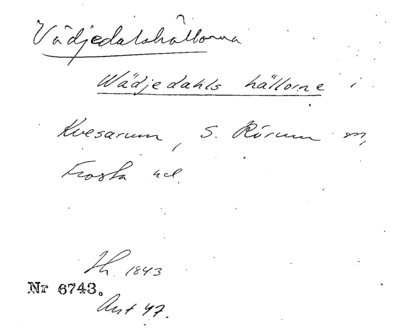 Vädjedalshällorna
Wädjedahls hällorne i
Kvesarum, S. Rörum sn,
Frosta hd.
Th. 1843
Nr 6743.
Ant 47.